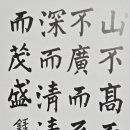 山不高而
不廣而
深而清
而茂盛